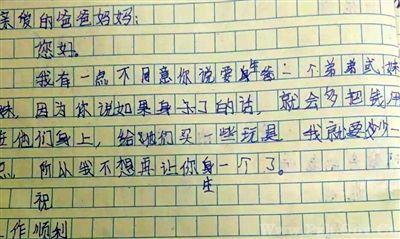 亲的爸爸妈妈：
您好。
我有一点不同意你说要二个弟弟或妹
妹，因为你说如果身了的话，就会多把钱用
在他们身上，给她们买一些玩具，我就要少一
点，所以我不想再让你身一个了。
生
祝
工作顺利